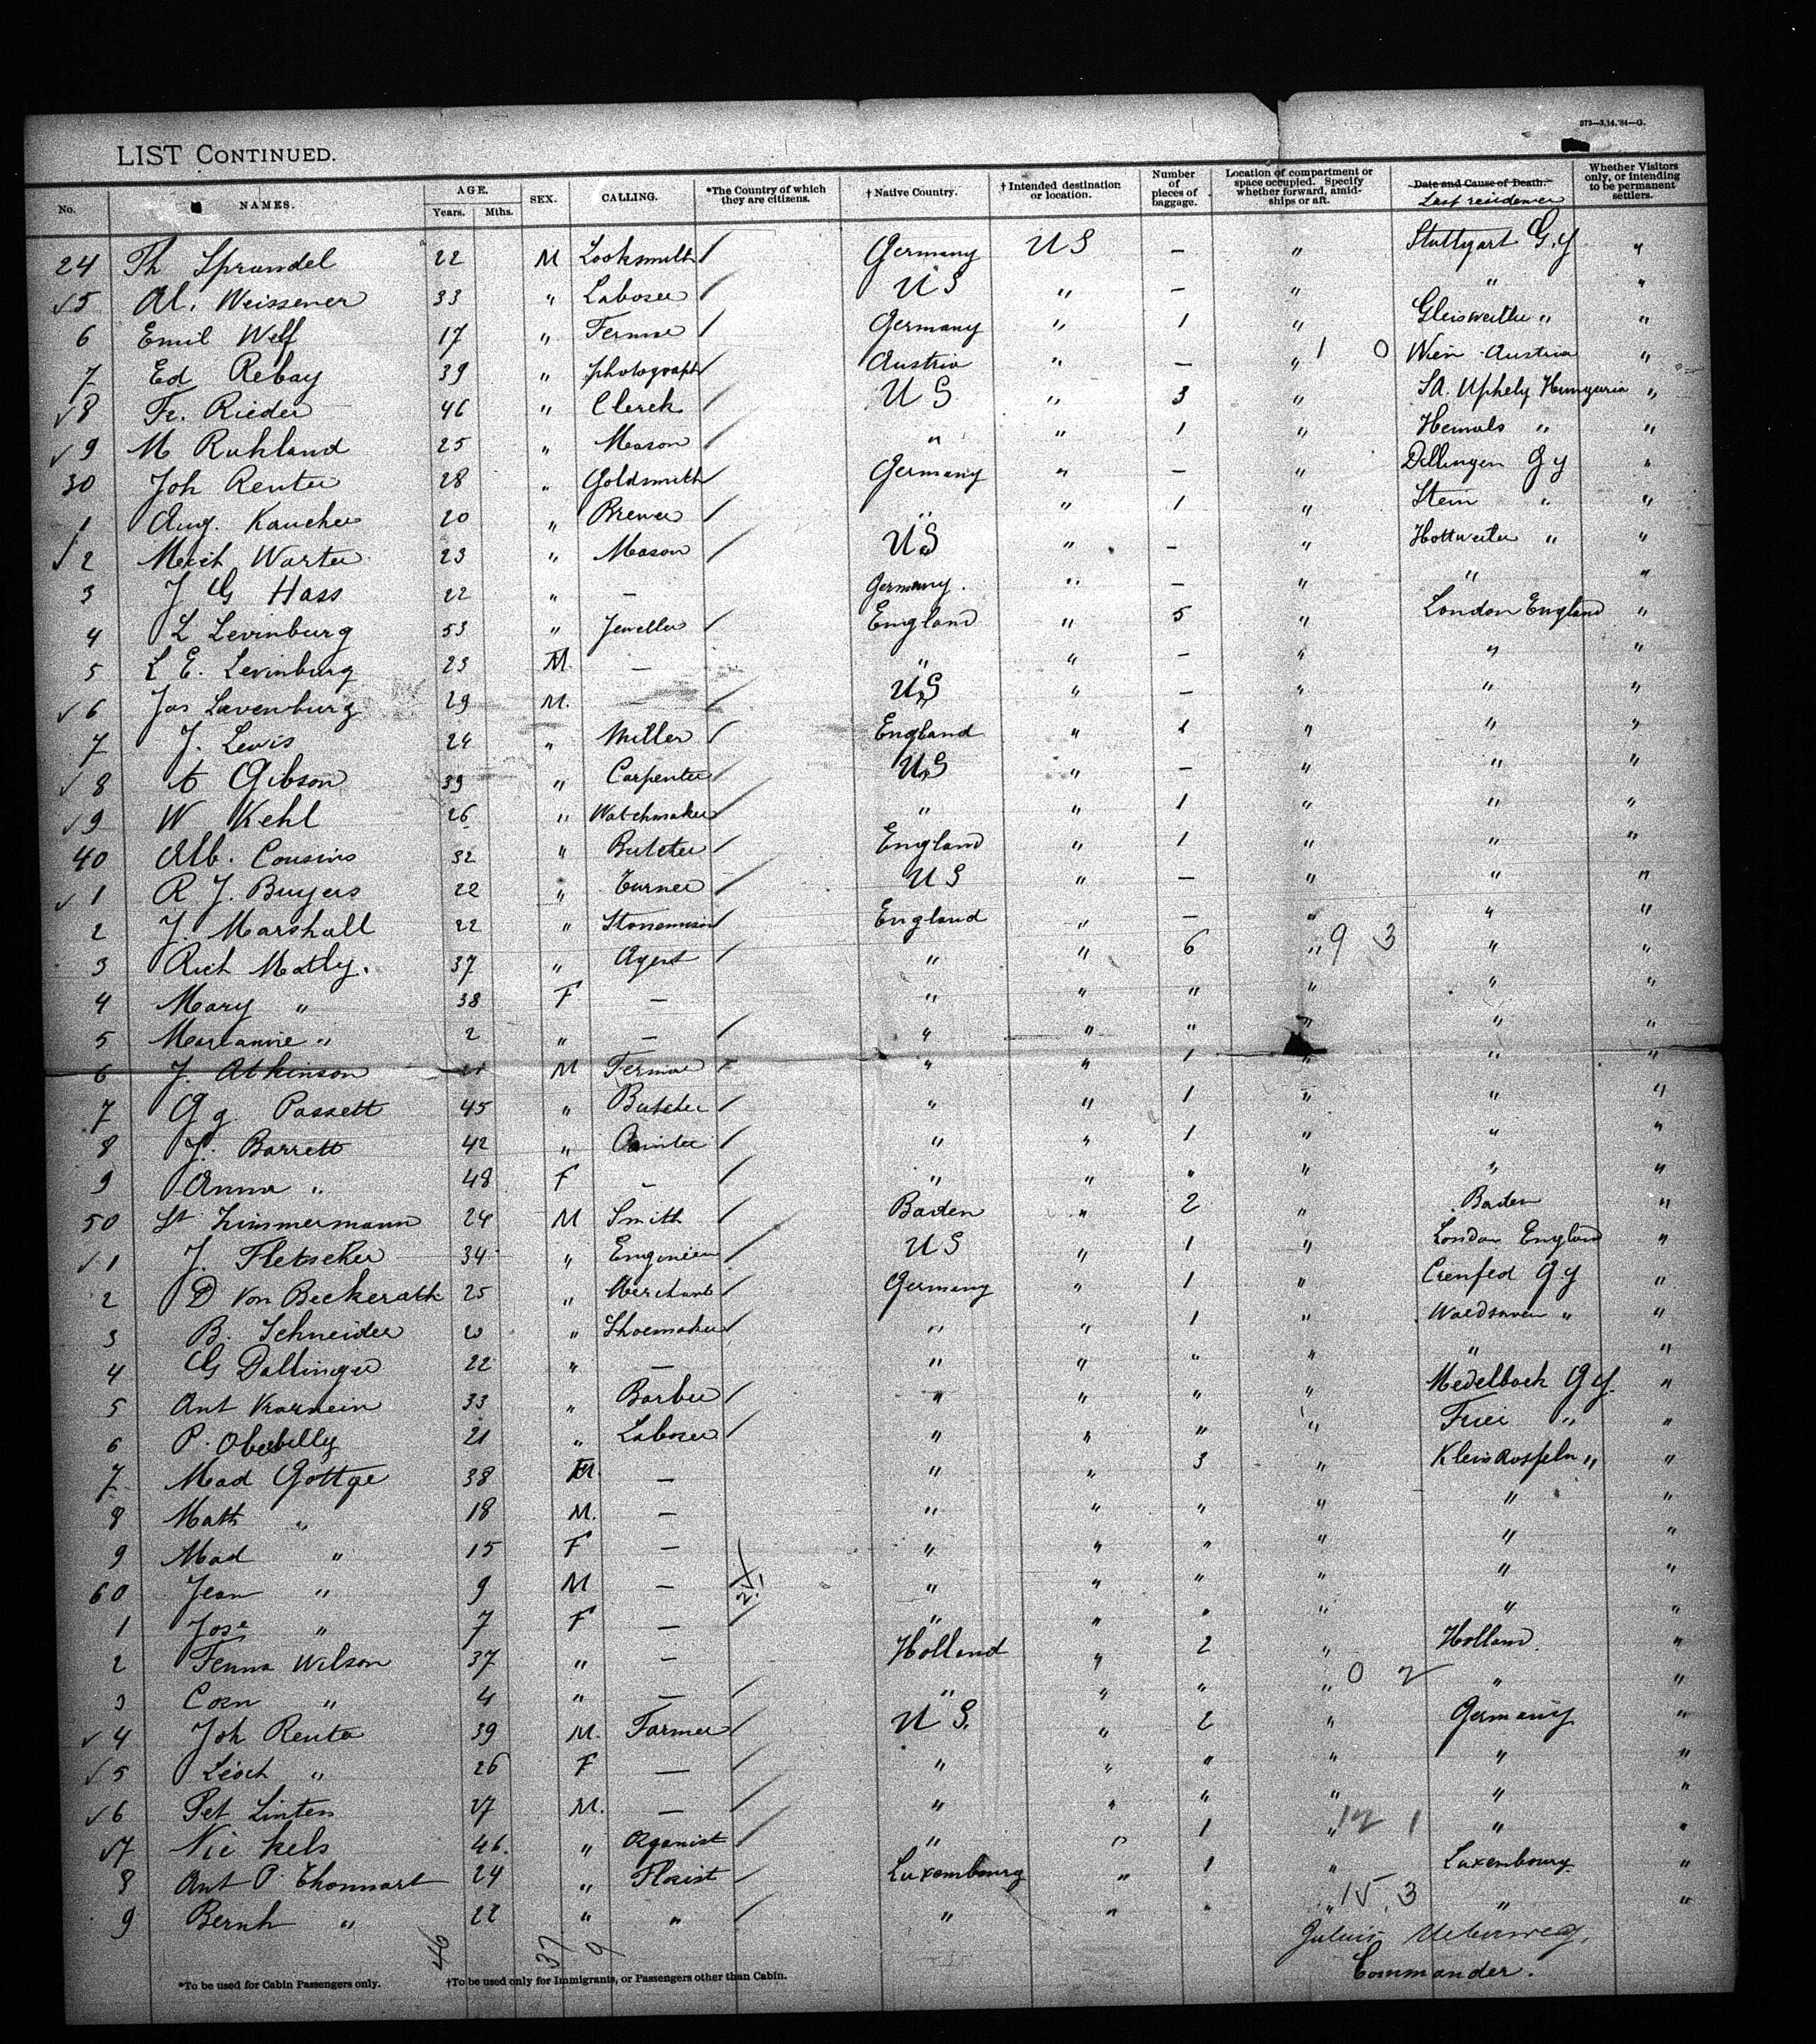 373—3,14,'84—G.
LIST CONTINUED.
No. NAMES. AGE. Years. Mths. SEX. CALLING. *The Country of which they are citizens. † Native Country. † Intended destination or location. Number of pieces of baggage. Location of compartment or space occupied. Specify whether forward, amidships or aft. Date and Cause of Death. Last residence Whether Visitors only, or intending to be permanent settlers.
24 Th Sprundel 22 M Locksmith / Germany US — " Stuttgart G.y "
✓5 Al. Weissener 33 " Laborer / US " — " " "
6 Emil Welf 17 " Farmer / Germany " 1 " "
7 Ed Rebay 39 " photograph / Austria " — " 1 0 Wien Austria "
✓8 Fr. Rieder 46 " Clerck / US " 3 " Hungaria "
✓9 M Ruhland 25 " Mason / " " 1 " Hernals " "
30 Joh Renter 28 " Goldsmith / Germany " — " Dillingen Gy "
1 Aug. Kaucher 20 " Brewer / " " 1 " Stein " "
✓2 Mich Warter 23 " Mason / US " — " Hottweiler " "
3 J G Hass 22 " — Germany. " — " " "
4 L Levinburg 53 " Jeweller / England " 5 " London England "
5 L E. Levinburg 23 M. — " " — " " "
✓6 Jos Lavenburg 29 M. / US " — " " "
7 J. Lewis 24 " Miller / England " 1 " " "
✓8 A Gibson 39 " Carpenter / US " — " " "
✓9 W Kehl 26 " Watchmaker / " " 1 " " "
40 Alb. Cousins 32 " Butcher / England " 1 " " "
✓1 R J. Buyers 22 " Turner / US " — " " "
2 J Marshall 22 " Stonemason / England " — " " "
3 Rich Matly. 37 " Agent / " " 6 " 9 3 " "
4 Mary " 38 F — " " " " " "
5 Marianne " 2 " — / " " " " " "
6 J. Atkinson M Farmer / " " 1 " " "
7 Gg. Passett 45 " Butcher / " " 1 " " "
8 J. Barrett 42 " Painter / " " 1 " " "
9 Anna " 48 F — / " " " " " "
50 St Zimmermann 24 M Smith / Baden " 2 " Baden "
✓1 J. Fletscher 34 " Engineer / US " 1 " London England "
2 D von Beckerath 25 " Merchant / Germany " 1 " Crenfed Gy "
3 B. Schneider 20 " Shoemaker / " " 1 " "
4 G Dallinger 22 " — " " " " " "
5 Ant Karnein 33 " Barber / " " " " Medelbock Gy. "
6 P. Oberbilly 21 " Laborer / " " " " Trier " "
7 Mad Gottge 38 F. — " " 3 " Klein Rosseln " "
8 Math " 18 M. — " " " " " "
9 Mad " 15 F — " " " " " "
60 Jean " 9 M — " " " " " "
1 Jose " 7 F — / " " " " " "
2 Fenna Wilson 37 " — Holland " 2 " Holland. "
3 Corn " 4 " — / " " " " 0 2 " "
✓4 Joh Renta 39 M. Farmer / U S. " 2 " Germany "
✓5 " 26 F — " " " " " "
✓6 Pet Linten 27 M. — / " " " " " "
✓7 Nic kels 46. " Organist / " " 1 " 12 1 " "
8 Ant P. Thonnart 24 " Florist / Luxembourg " 1 " Luxembourg. "
9 Bernh " 22 " " / " " " " 15 3 " "
46 37 9
Julius Ueberweg,
Commander.
*To be used for Cabin Passengers only. †To be used only for Immigrants, or Passengers other than Cabin.